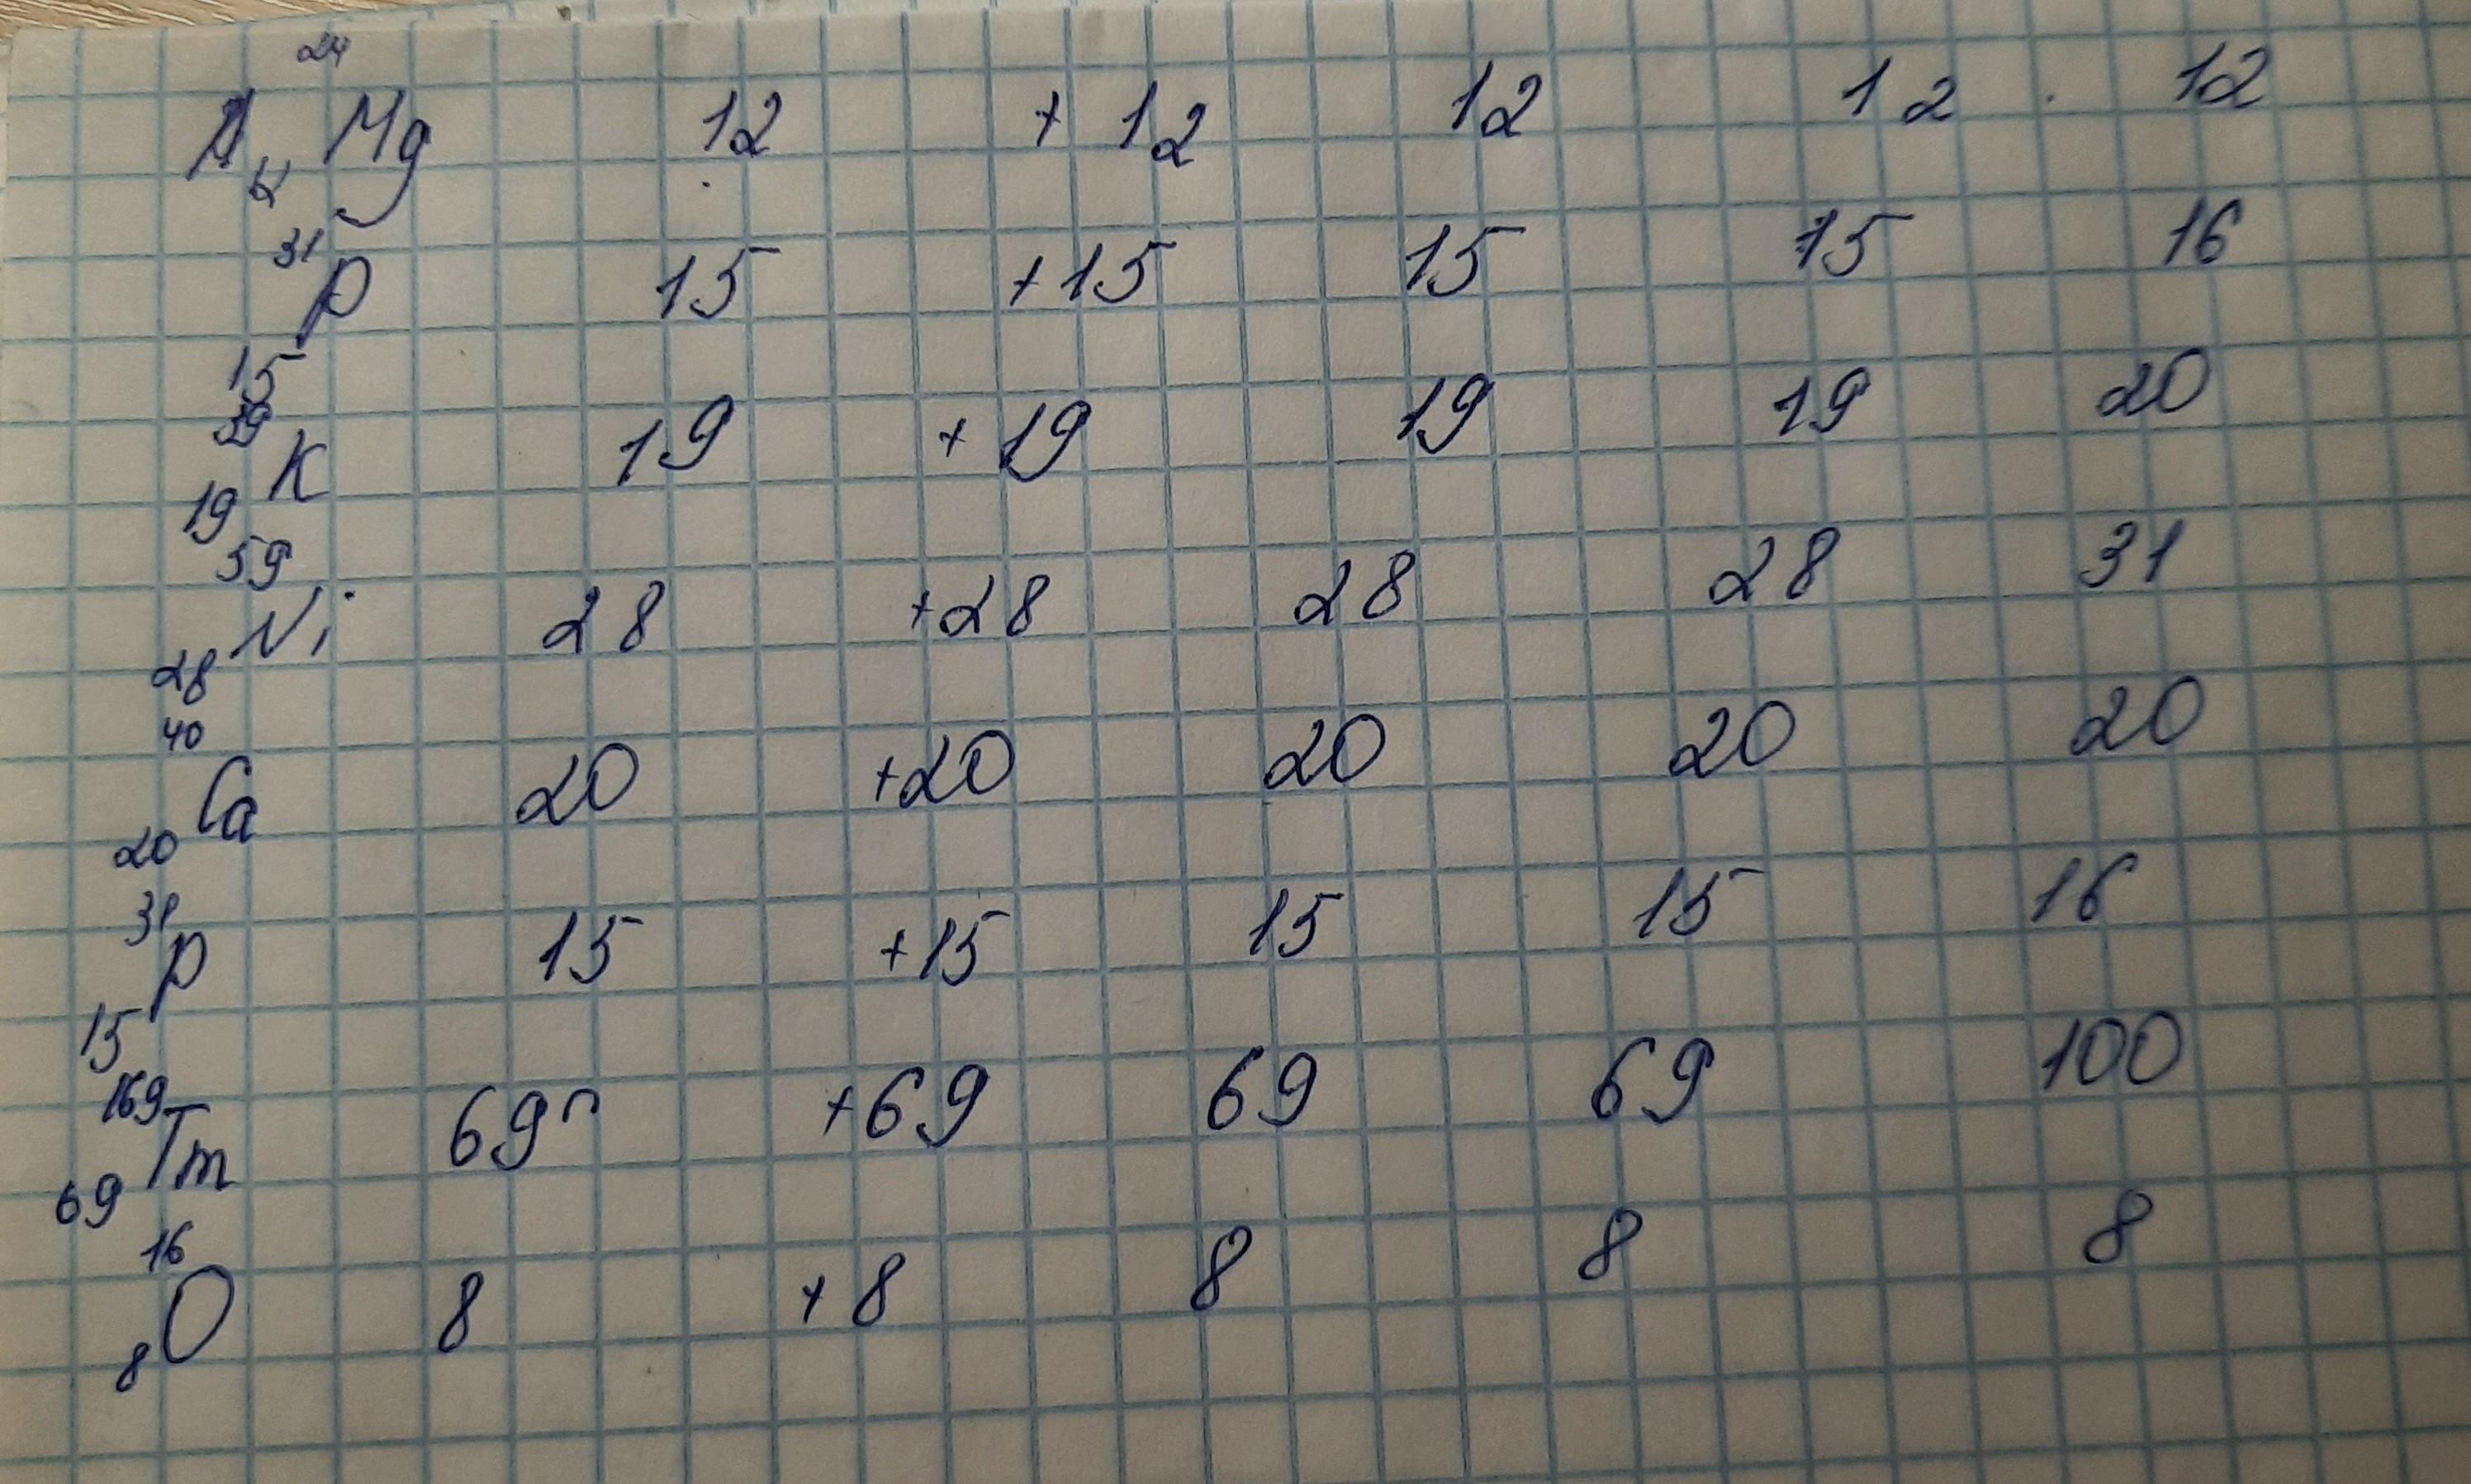 24
Mg 12 + 12 12 12 12
12
31
P 15 +15 15 15 16
15
39
K 19 + 19 19 19 20
19
59
Ni 28 +28 28 28 31
28
40
Ca 20 +20 20 20 20
20
31
P 15 +15 15 15 16
15
169
Tm 69 +69 69 69 100
69
16
O 8 + 8 8 8 8
8